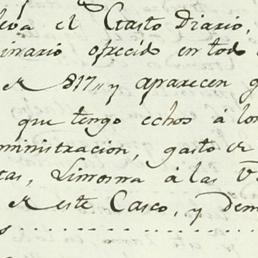 leva el Gasto Diario,
dinario ofrecido en tod
de 817,, y aparecen q
que tengo echos á los
ministracion, gasto de
tas, Limosna á las Ve
de este Casco, y dem